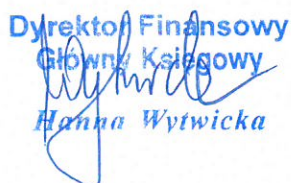 Dyrektor Finansowy
Główny Księgowy
Hanna Wytwicka